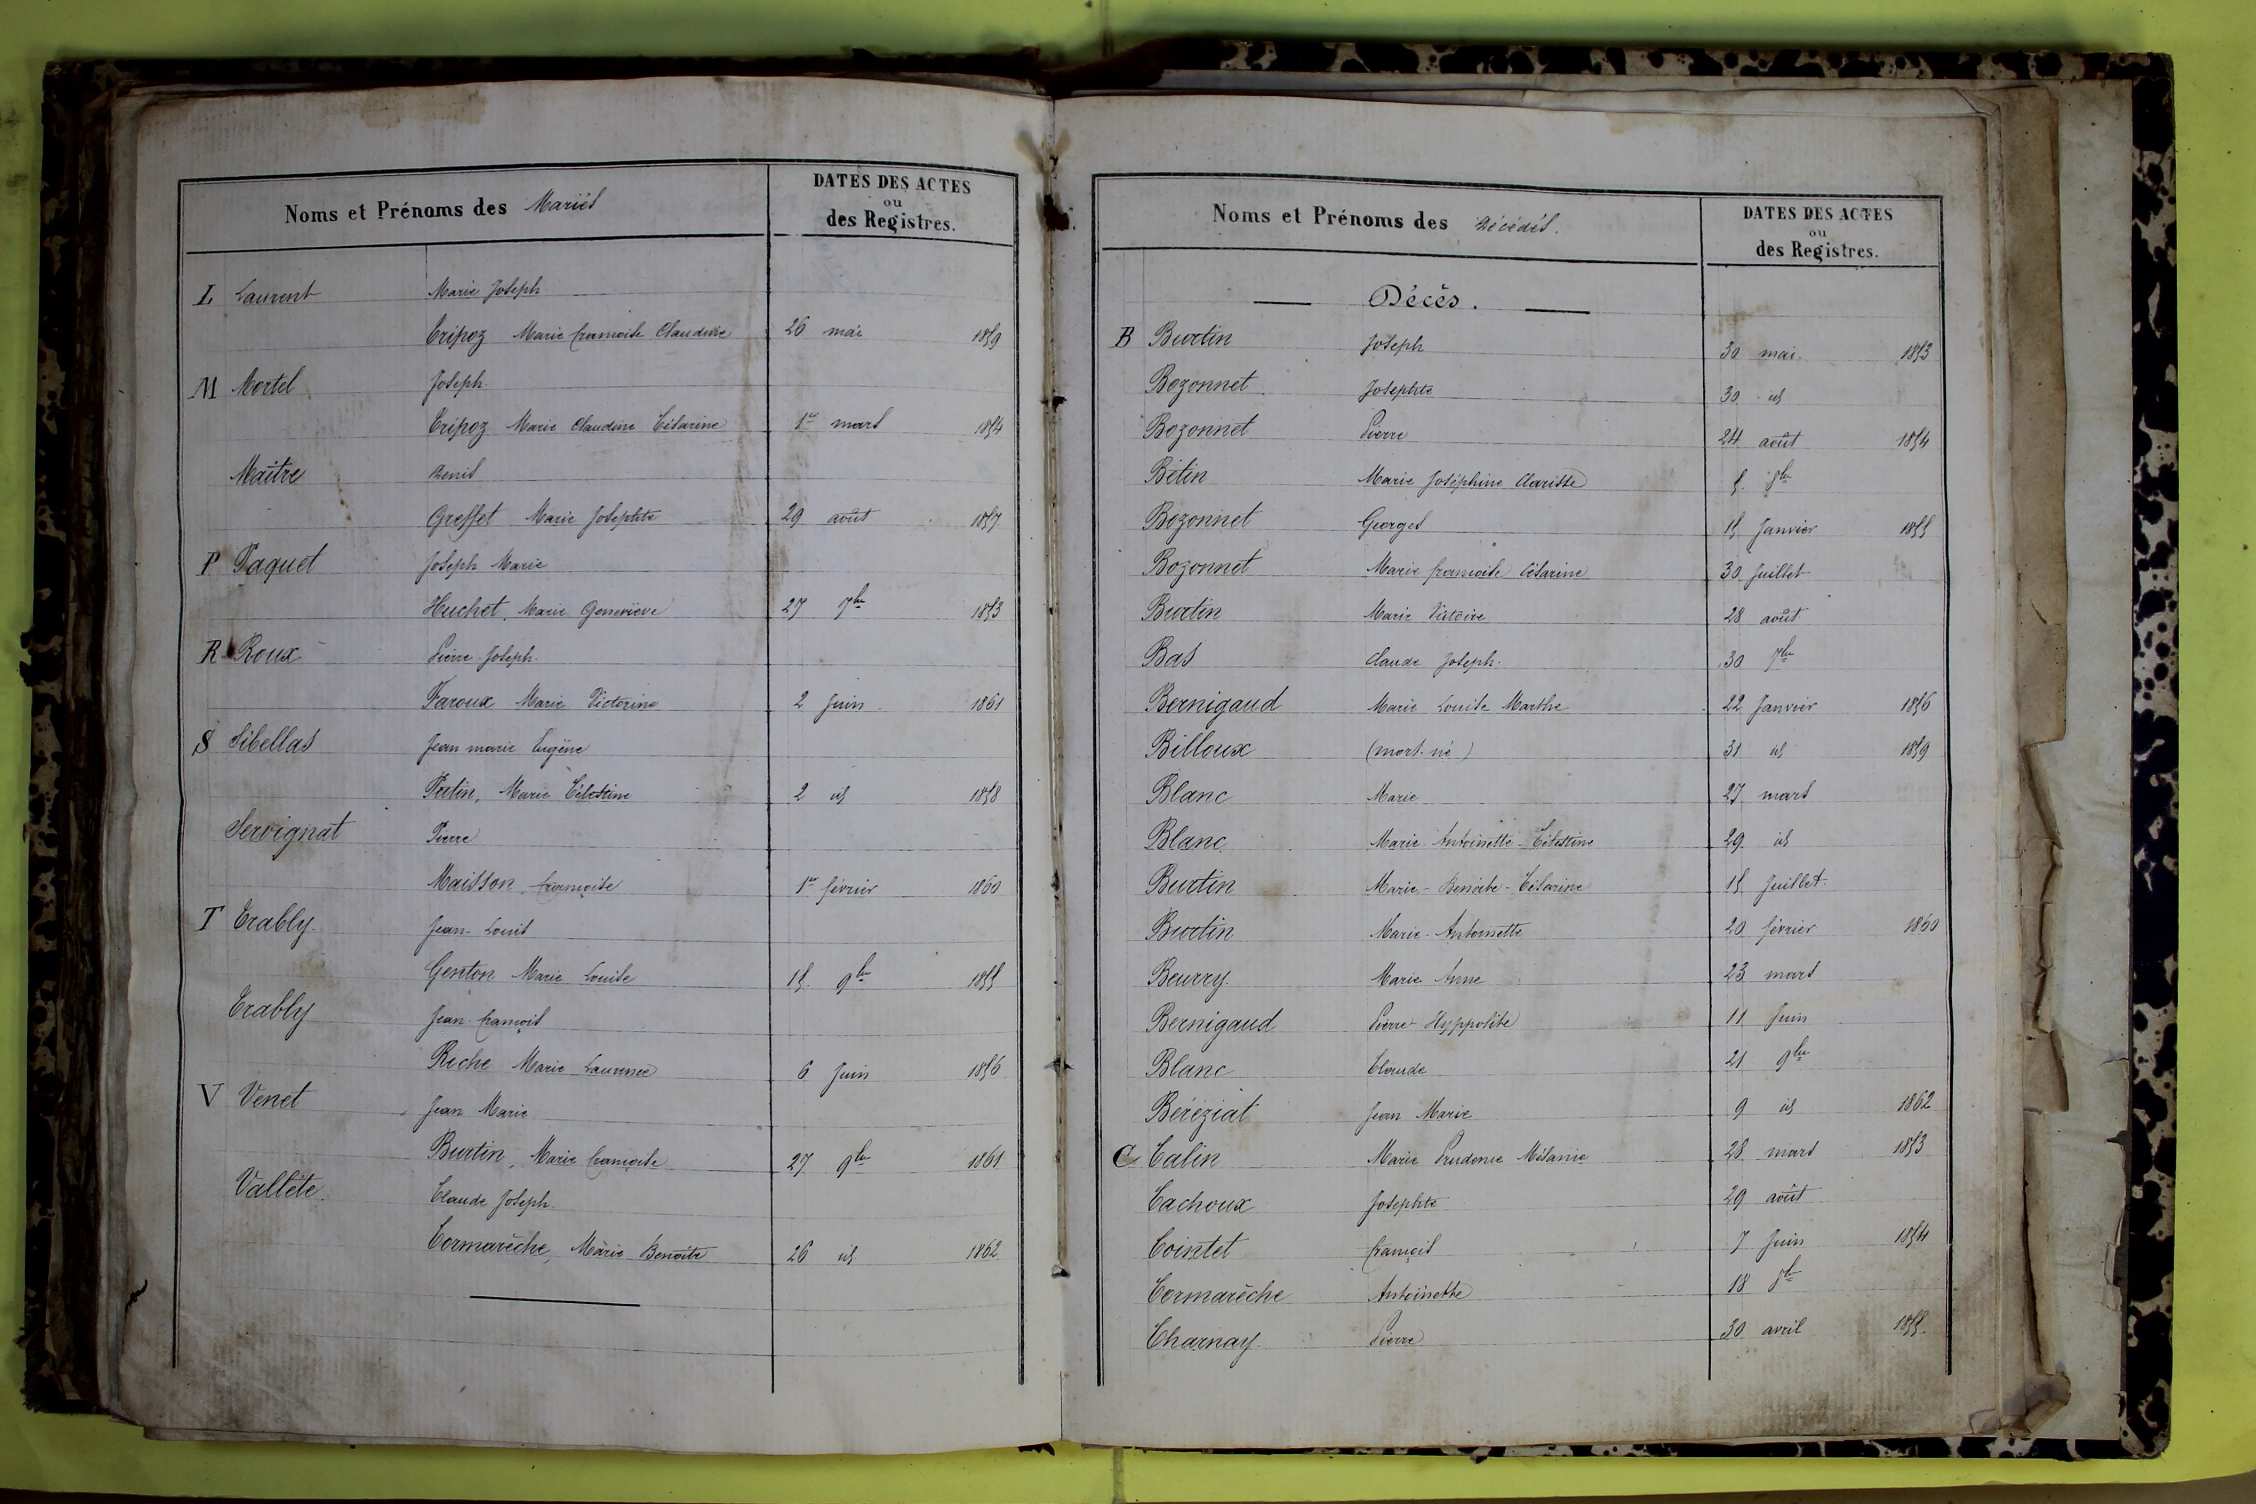 Noms et Prénoms des Mariés
DATES DES ACTES
ou
des Registres.
L Laurent Marie Joseph
Tripoz Marie françoise Claudine 26 mai 1859
M Mortel Joseph
Tripoz Marie Claudine Césarine 1er mars 1854
Maître Denis
Greffet Marie Josephte 29 août 1857
P Paquet Joseph Marie
Huchet, Marie Geneviève 27 7bre 1853
R Roux Pierre Joseph
Faroux Marie Victorine 2 Juin 1861
S Sibellas Jean marie Eugène
Putin, Marie Célestine 2 id 1858
Servignat Pierre
Maisson, françoise 1er février 1860
T Trably Jean-Louis
Genton Marie Louise 15 9bre 1855
Trably Jean-françois
Roche Marie Laurence 6 Juin 1856
V Venet Jean Marie
Burtin, Marie françoise 27 9bre 1861
Vallète Claude Joseph
Cormarèche, Marie Benoîte 26 id 1862
Noms et Prénoms des Décédés.
DATES DES ACTES
ou
des Registres.
Décès.
B Burtin Joseph 30 mai 1853
Bozonnet Josephte 30 id
Bozonnet Pierre 24 août 1854
Bétin Marie Joséphine Clarisse 5 8bre
Bozonnet Georges 15 Janvier 1855
Bozonnet Marie françoise Césarine 30 Juillet
Burtin Marie Victoire 28 août
Bas Claude Joseph 30 7bre
Bernigaud Marie Louise Marthe 22 Janvier 1856
Billoux (mort-né) 31 id 1859
Blanc Marie 27 mars
Blanc Marie Antoinette Célestine 29 id
Burtin Marie-Benoîte-Césarine 15 Juillet
Burtin Marie-Antoinette 20 février 1860
Beurry Marie Anne 23 mars
Bernigaud Pierre Hyppolite 11 Juin
Blanc Claude 21 9bre
Béréziat Jean Marie 9 id 1862
C Calin Marie Prudence Mélanie 28 mars 1853
Cachoux Josephte 29 août
Cointet françois 7 Juin 1854
Cormarèche Antoinette 18 8bre
Charnay Pierre 30 avril 1855